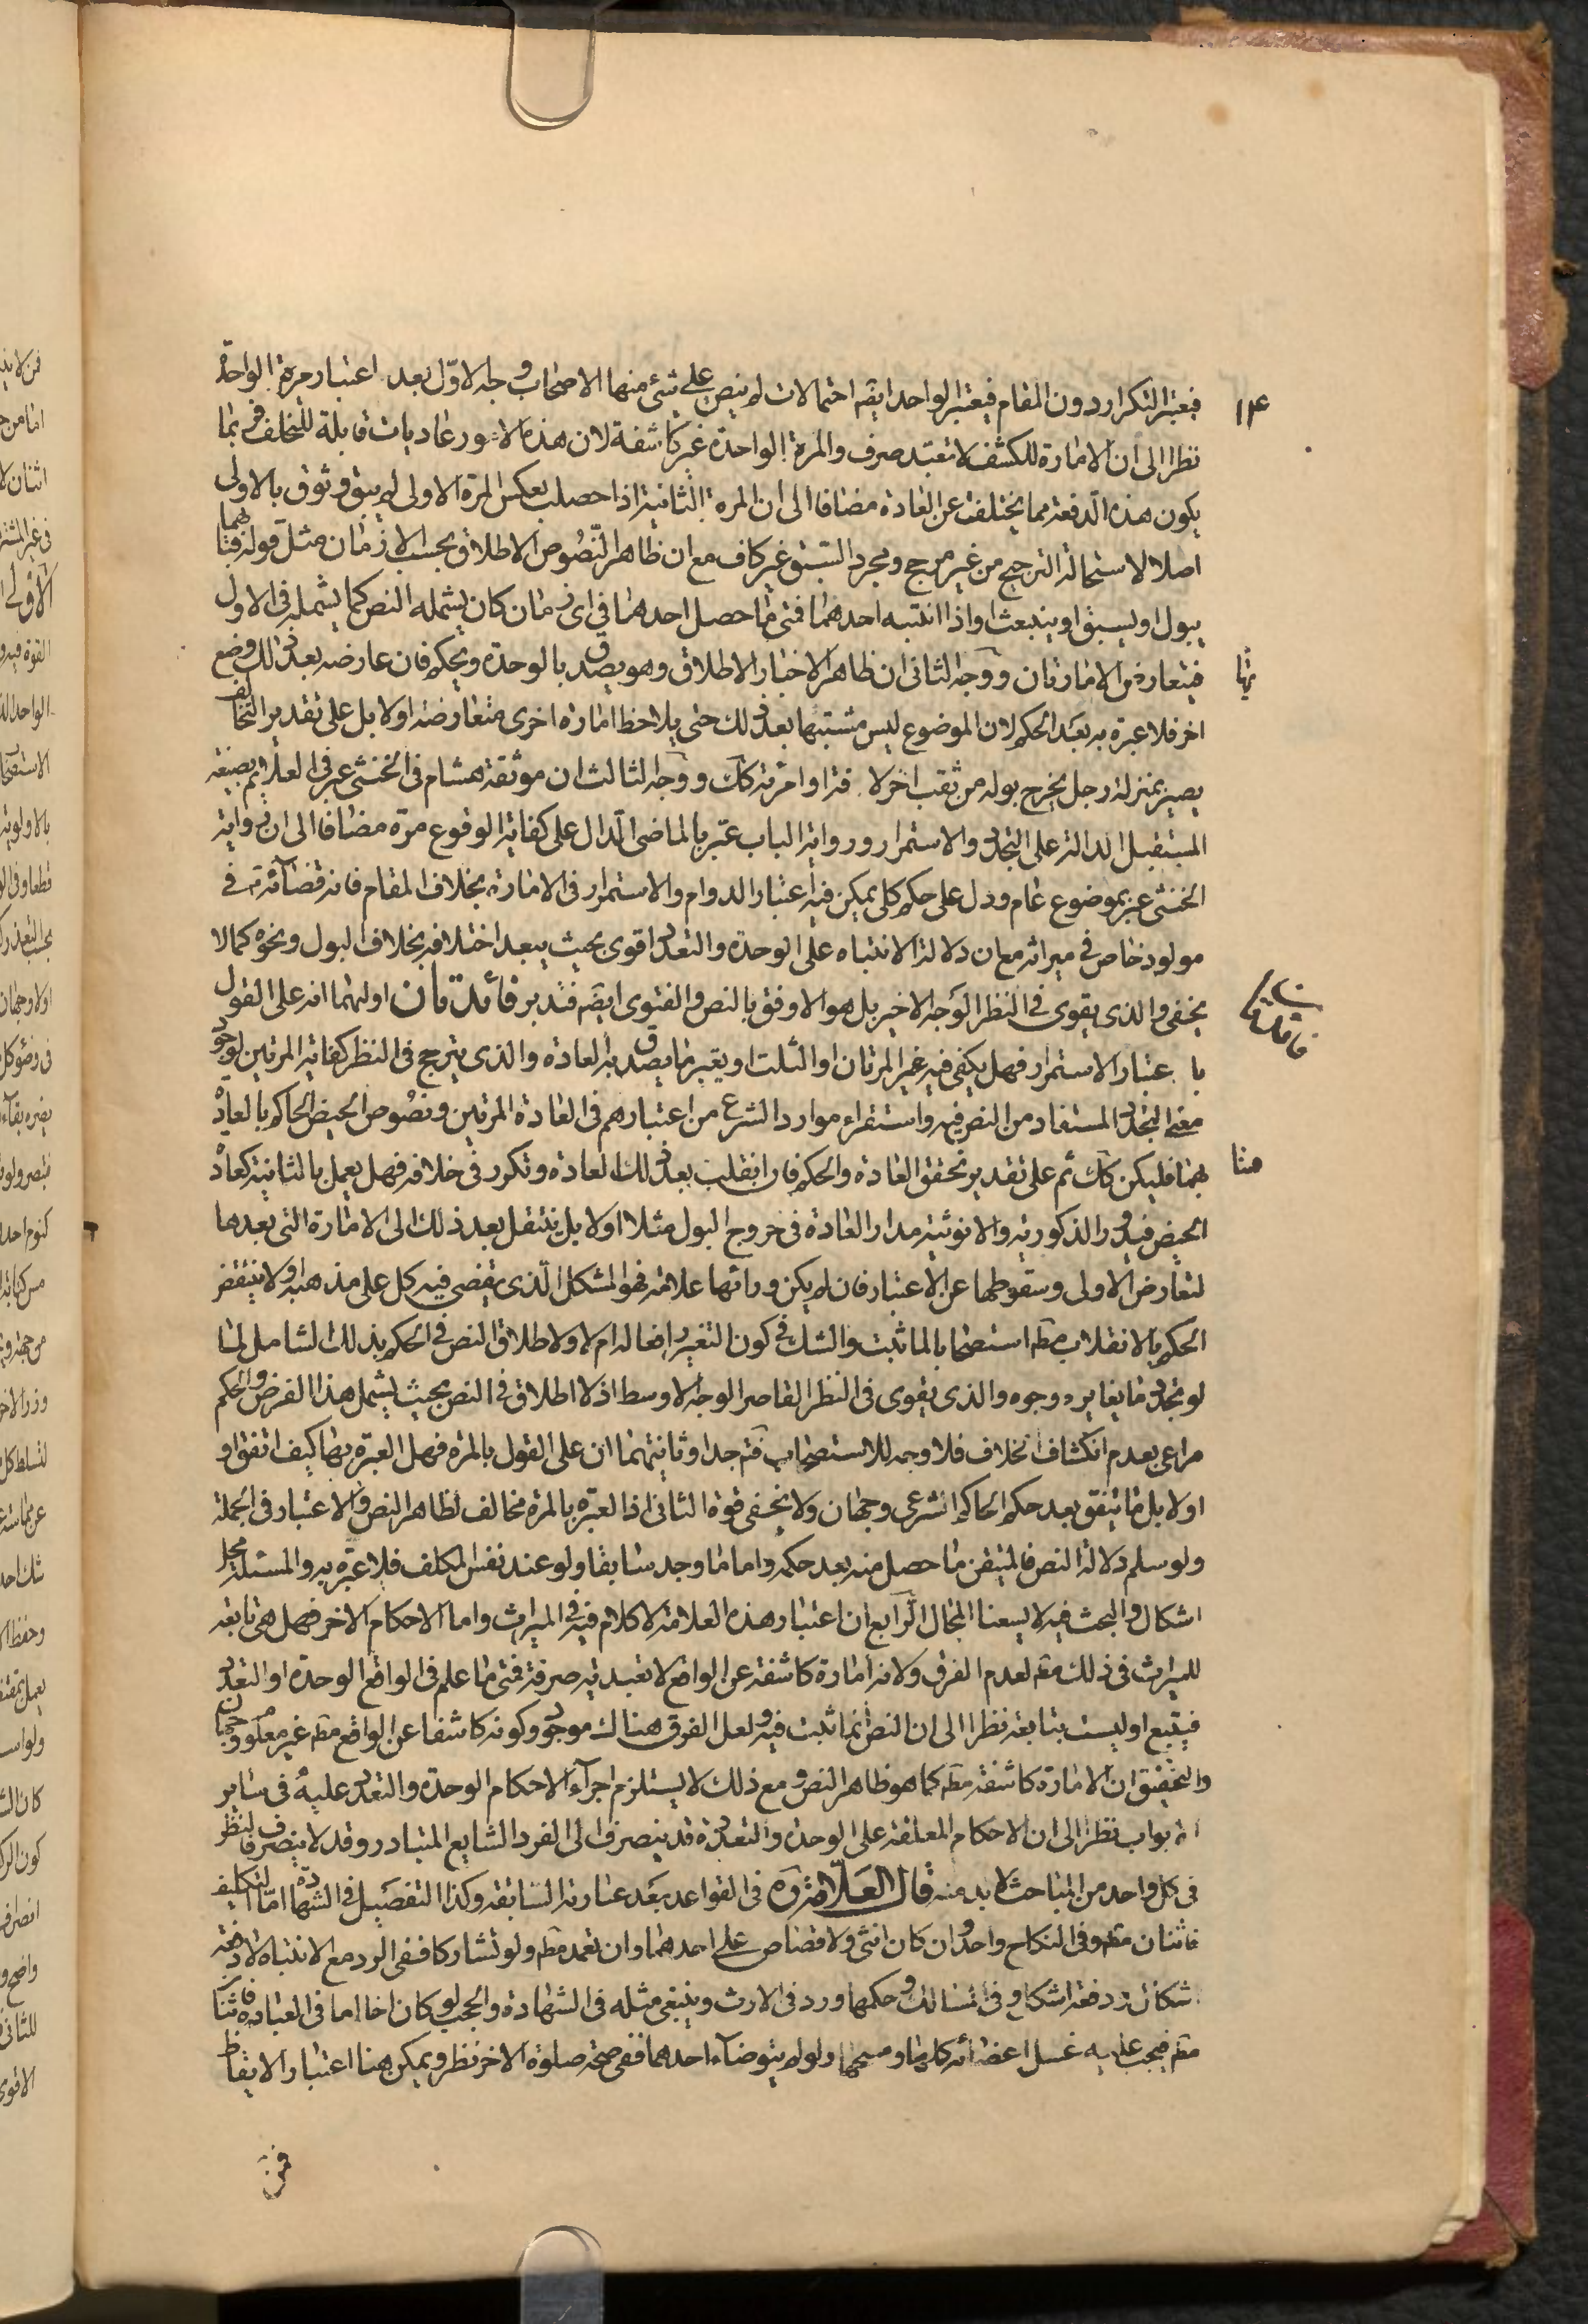 ١٢٤
فيعتبر التكرار دون المقام فيعتبر الواحد ايضه احتمالات لم ينص على شئ منها الاصحاب وجه الاوّل بعد اعتبار مرة الواحدة
نظرا الى ان الامارة للكشف لا تعبّد صرف والمرة الواحدة غير كاشفة لان هذه الامور عاديات قابلة للتخلف فربما
يكون هذه الدفعة مما يختلف عن العادة مضافا الى ان المرة الثانية اذا حصلت بعكس المرة الاولى لم يبق وثوق بالاولى
اصلا لاستحالة الترجيح من غير مرجح ومجرد السّبق غير كاف مع ان ظاهر النّصوص الاطلاق بحسب الازمان مثل قوله فمن ايهما
يبول او يسبق او ينبعث او اذا انتبه احدهما فمتى ما حصل احدهما فى اى زمان كان يشمله النص كما يشمله فى الاول
فيتعارض الامارتان ووجه الثانى ان ظاهر الاخبار الاطلاق وهو يصدق بالوحدة ويحكم فان عارضه بعد ذلك وضع
اخر فلا عبرة به بعد الحكم لان الموضوع ليس مشتبها بعد ذلك حتى يلاحظ امارة اخرى متعارضة اولا بل على تقدير التخالف
يصير بمنزلة رجل يخرج بوله من ثقب اخر لا فتا او امرئة كك ووجه الثالث ان موثقة هشام فى الخنثى عبر فى العلائم بصيغة
المستقبل الدالة على التجدد والاستمرار ورواية الباب عبّر بالماضى الدال على كفاية الوقوع مرة مضافا الى ان رواية
الخنثى عبر بموضوع عام ودل على حكم كلى يمكن فيه اعتبار الدوام والاستمرار فى الامارة بخلاف المقام فانه قضآئه فى
مولود خاص فى ميراثه مع ان دلالة الانتباه على الوحدة والتعدد اقوى بحيث يبعد اختلافه بخلاف البول ونحوه كما لا
يخفى والذى يقوى فى النظر الوجه الاخير بل هو الاوفق بالنص والفتوى ايضه فتدبر فائدتان اوليهما انه على القول
با عتبار الاستمرار فهل يكفى فيه غير المرتان او الثلث او يعتبر ما يصدق به العادة والذى يترجح فى النظر كفاية المرتين لوجود
معنى التجدد المستفاد من النص فيه واستقراء موارد الشرع من اعتبارهم فى العادة المرتين ونصوص الحيض الحاكم بالعادة
بهما فليكن كك ثم على تقدير تحقق العادة والحكم فان انقلب بعد ذلك العادة وتكرر فى خلافه فهل يعمل بالثانية كعادة
الحيض فيدور الذكورية والانوثية مدار العادة فى خروج البول مثلا اولا بل ينتقل بعد ذلك الى الامارة التى بعدها
لتعارض الاولى وسقوطها عن الاعتبار فان لم يكن ورائها علامة فهو المشكل الّذى يقضى فيه كل على مذهبه اولا ينتقض
الحكم بالانقلاب مط استصحابا لما ثبت والشك فى كون التغير رافعا له ام لا ولاطلاق النص فى الحكم بذلك الشامل لما
لو تجدد ما يغايره وجوه والذى يقوى فى النظر القاصر الوجه الاوسط اذ لا اطلاق فى النص بحيث يشمل هذا الفرض والحكم
مراعى بعدم انكشاف الخلاف فلا وجه للاستصحاب فتم جدا وثانيتهما ان على القول بالمرة فهل العبرة بها كيف اتفق او
اولا بل ما يتفق بعد حكم الحاكم الشرعى وجهان ولا يخفى قوة الثانى اذا العبرة بالمرة مخالف لظاهر النص والاعتبار فى الجملة
ولو سلم دلالة النص فالمتيقن ما حصل منه بعد حكمه واما ما وجد سابقا ولو عند نفس المكلف فلا عبرة به والمسئلة محل
اشكال والبحث فيه لا يسعنا المجال الرّابع ان اعتبار هذه العلامة لا كلام فيه فى الميراث واما الاحكام الاخر فهل هى تابعة
للميراث فى ذلك مط لعدم الفرق ولانه امارة كاشفة عن الواقع لا تعبدية صرفة فمتى ما علم فى الواقع الوحدة او التعدد
فيتبع او ليست بتابعة نظرا الى ان النص انما ثبت فيه ولعل الفرق هناك موجود وكونه كاشفا عن الواقع مط غير معلوم وجهان
والتحقيق ان الامارة كاشفة مط كما هو ظاهر النص ومع ذلك لا يستلزم اجرآء الاحكام الوحدة والتعدد عليه فى ساير
الابواب نظرا الى ان الاحكام المعلقة على الوحدة والتعدد قد ينصرف الى الفرد الشايع المتبادر وقد لا ينصرف فالنظر
فى كل واحد من المباحث لا بد منه قال العلّامة ره فى القواعد بعد عبارته السّابقة وكذا التفصيل فى الشهادة امّا التكليف
فاثنان مط وفى النكاح واحد وان كان انثى ولا قصاص على احدهما وان تعمد مط ولو تشاركا ففى الرد مع الانتباه لا دفعة
اشكال ودفعة اشكل وفى المسالك وحكمها ورد فى الارث وينبغى مثله فى الشهادة والحجب لو كان اخا اما فى العبادة فاثنان
مط فيجب عليه غسل اعضائه كلها ومسحها ولو لم يتوضآء احدهما ففى صحة صلوة الاخر نظر ويمكن هنا اعتبار الايقاظ
فمن